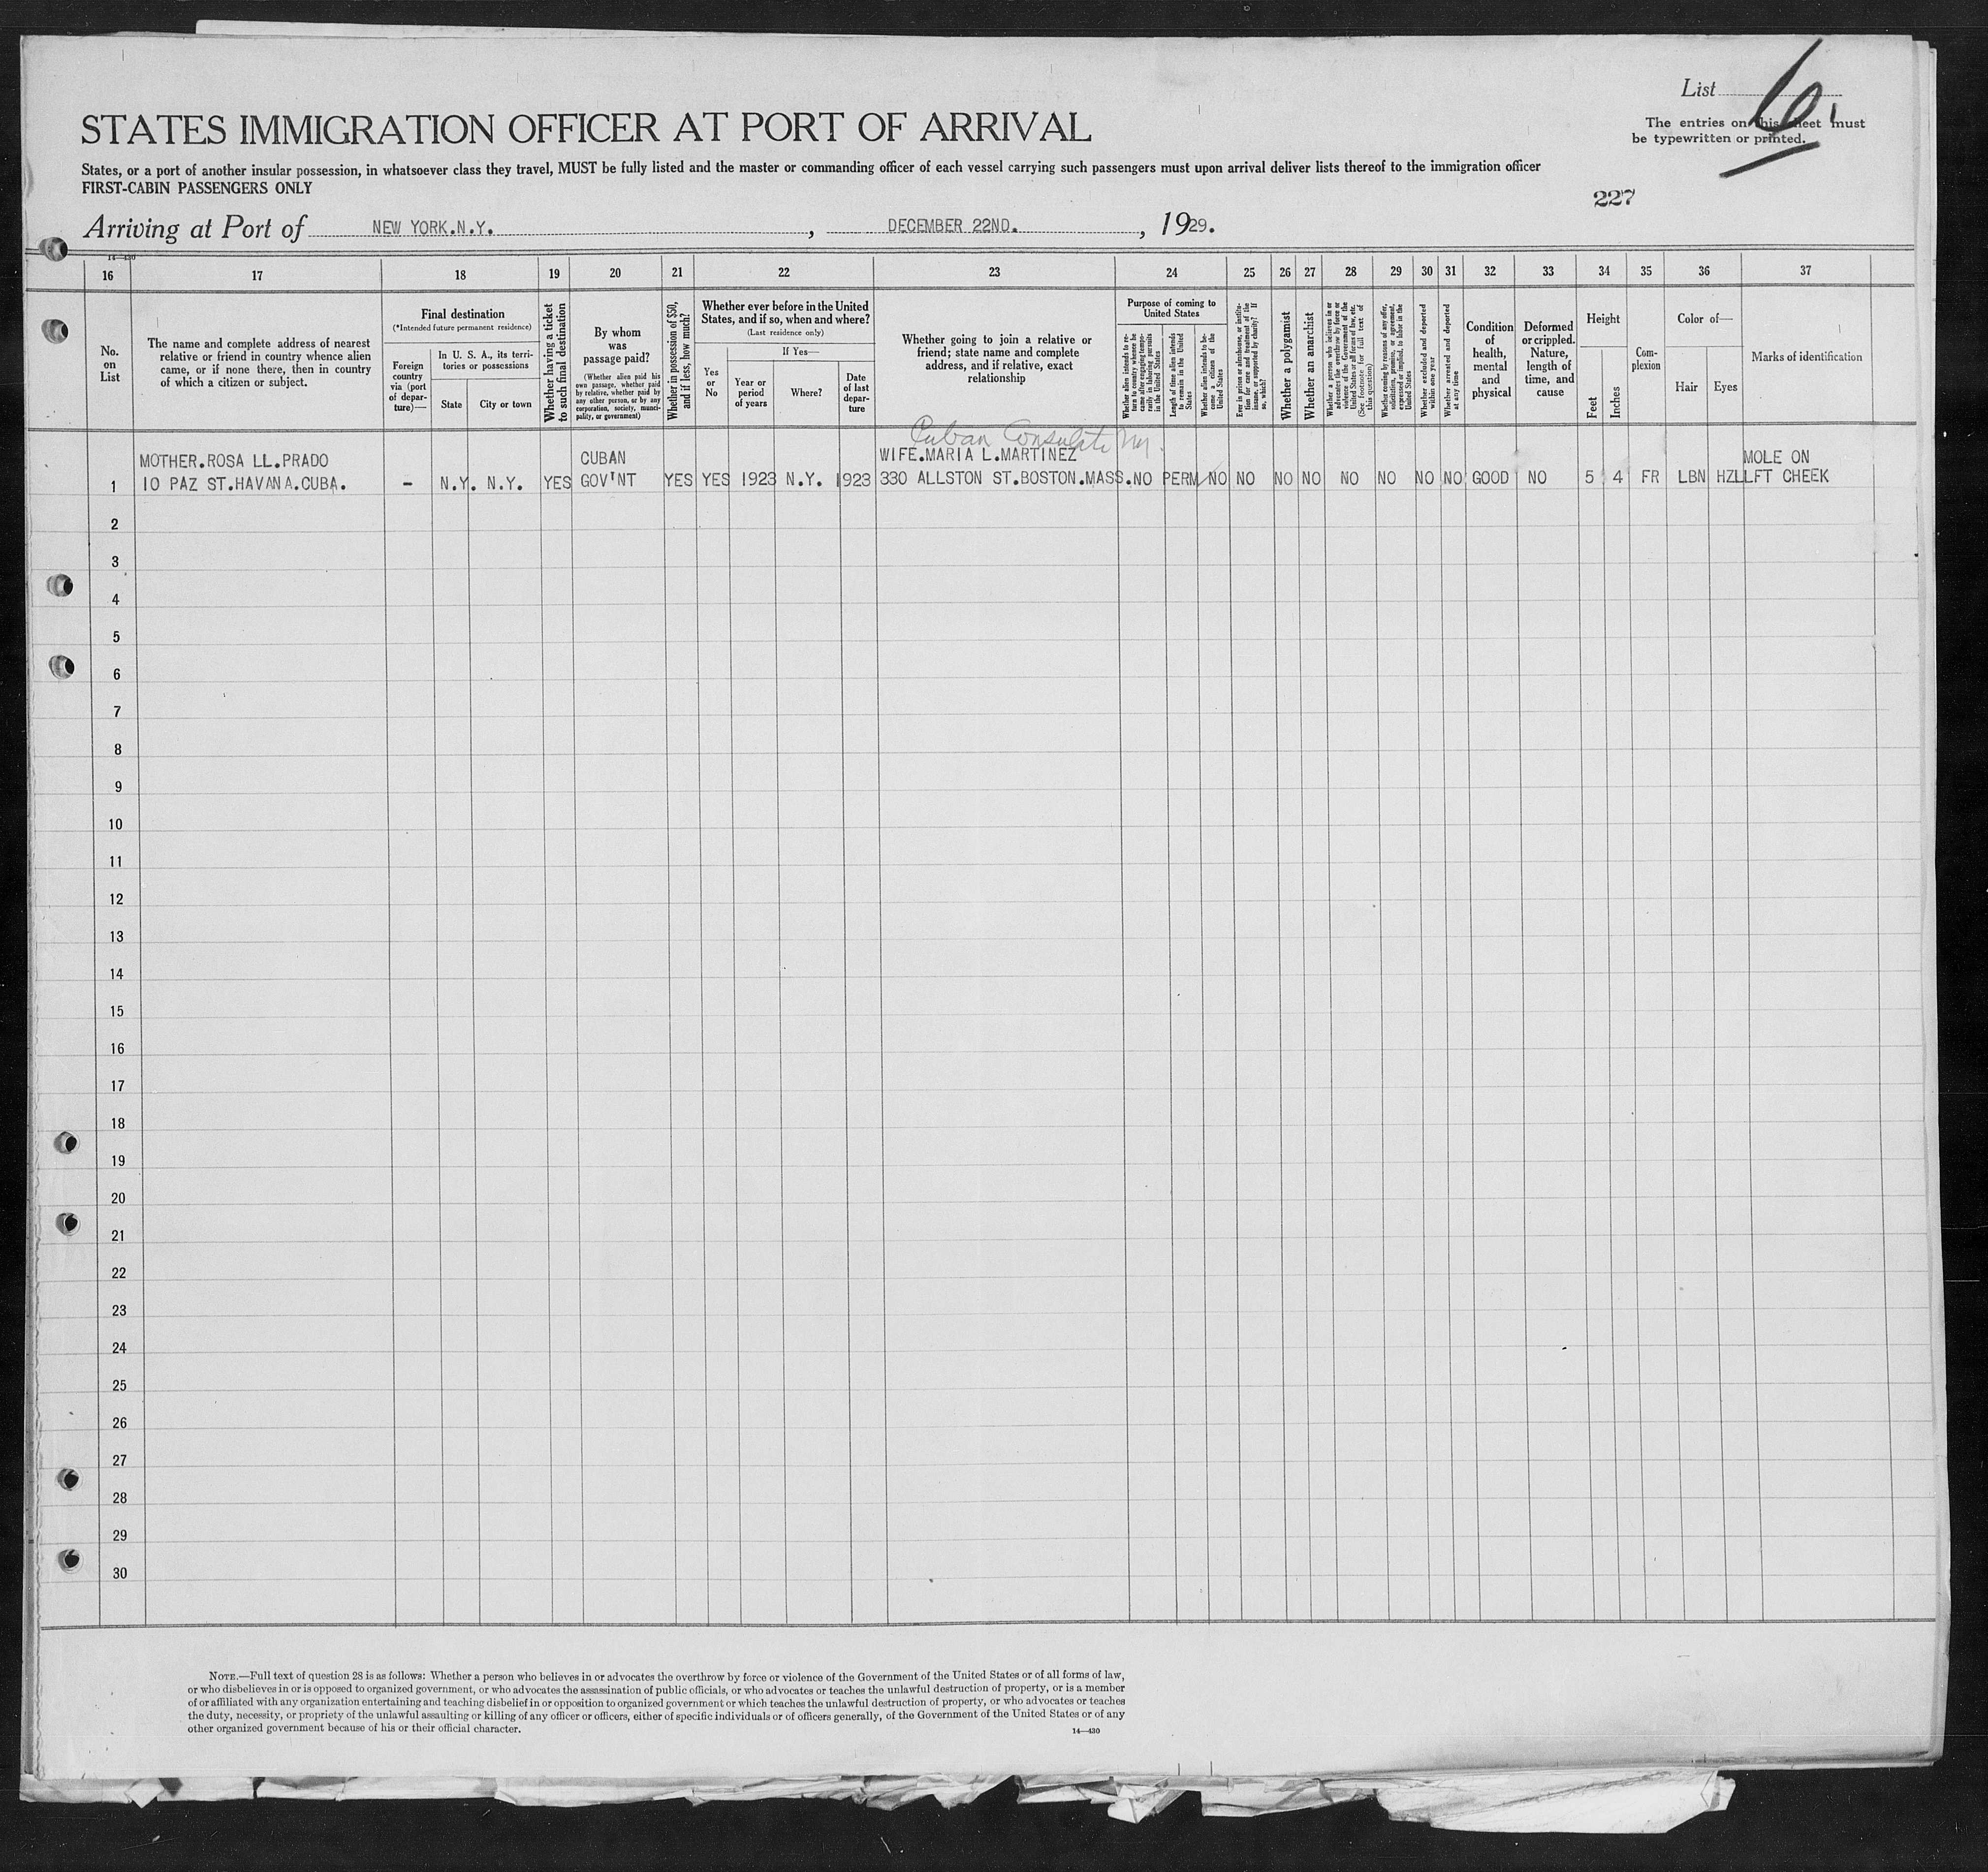 List 6.
The entries on this sheet must
be typewritten or printed.
STATES IMMIGRATION OFFICER AT PORT OF ARRIVAL
States, or a port of another insular possession, in whatsoever class they travel, MUST be fully listed and the master or commanding officer of each vessel carrying such passengers must upon arrival deliver lists thereof to the immigration officer
FIRST-CABIN PASSENGERS ONLY
227
Arriving at Port of NEW YORK.N.Y. , DECEMBER 22ND. , 1929.
14—430
16 17 18 19 20 21 22 23 24 25 26 27 28 29 30 31 32 33 34 35 36 37
No.
on
List
The name and complete address of nearest
relative or friend in country whence alien
came, or if none there, then in country
of which a citizen or subject.
Final destination
(*Intended future permanent residence)
Foreign
country
via (port
of depar-
ture)—
In U. S. A., its terri-
tories or possessions
State
City or town
Whether having a ticket
to such final destination
By whom
was
passage paid?
(Whether alien paid his
own passage, whether paid
by relative, whether paid by
any other person, or by any
corporation, society, munici-
pality, or government)
Whether in possession of $50,
and if less, how much?
Whether ever before in the United
States, and if so, when and where?
(Last residence only)
Yes
or
No
If Yes—
Year or
period
of years
Where?
Date
of last
depar-
ture
Whether going to join a relative or
friend; state name and complete
address, and if relative, exact
relationship
Purpose of coming to
United States
Whether alien intends to re-
turn to country whence he
came after engaging tempo-
rarily in laboring pursuits
in the United States
Length of time alien intends
to remain in the United
States
Whether alien intends to be-
come a citizen of the
United States
Ever in prison or almshouse, or institu-
tion for care and treatment of the
insane, or supported by charity? If
so, which?
Whether a polygamist
Whether an anarchist
Whether a person who believes in or
advocates the overthrow by force or
violence of the Government of the
United States or all forms of law, etc.
(See footnote for full text of
this question)
Whether coming by reasons of any offer,
solicitation, promise, or agreement,
expressed or implied, to labor in the
United States
Whether excluded and deported
within one year
Whether arrested and deported
at any time
Condition
of
health,
mental
and
physical
Deformed
or crippled.
Nature,
length of
time, and
cause
Height
Feet
Inches
Com-
plexion
Color of—
Hair
Eyes
Marks of identification
Cuban Consulate
MOTHER.ROSA LL.PRADO CUBAN WIFE.MARIA L.MARTINEZ MOLE ON
1 10 PAZ ST.HAVANA.CUBA. - N.Y. N.Y. YES GOV'NT YES YES 1923 N.Y. 1923 330 ALLSTON ST.BOSTON.MASS. NO PERM NO NO NO NO NO NO NO NO GOOD NO 5 4 FR LBN HZL LFT CHEEK
2
3
4
5
6
7
8
9
10
11
12
13
14
15
16
17
18
19
20
21
22
23
24
25
26
27
28
29
30
NOTE.—Full text of question 28 is as follows: Whether a person who believes in or advocates the overthrow by force or violence of the Government of the United States or of all forms of law,
or who disbelieves in or is opposed to organized government, or who advocates the assassination of public officials, or who advocates or teaches the unlawful destruction of property, or is a member
of or affiliated with any organization entertaining and teaching disbelief in or opposition to organized government or which teaches the unlawful destruction of property, or who advocates or teaches
the duty, necessity, or propriety of the unlawful assaulting or killing of any officer or officers, either of specific individuals or of officers generally, of the Government of the United States or of any
other organized government because of his or their official character.
14—430